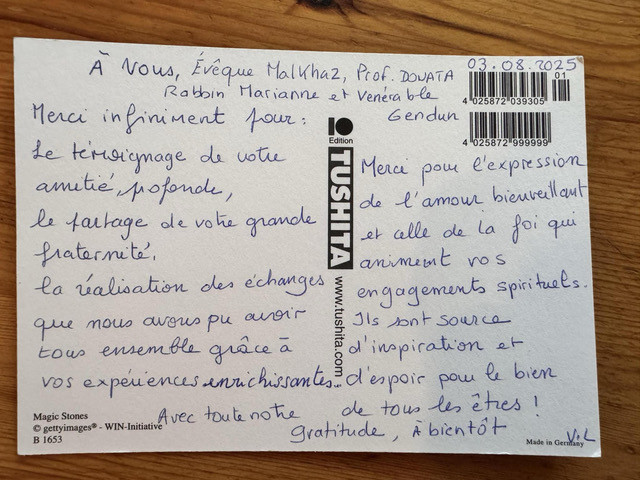 À Vous, Évêque Malkhaz, Prof. DOUATA
03.08.2025
Rabbin Marianne et Vénérable
Gendun
01
4 025872 039305
4 025872 999999
Merci infiniment pour :
Le témoignage de votre
amitié, profonde,
le partage de votre grande
fraternité.
la réalisation des échanges
que nous avons pu avoir
tous ensemble grâce à
vos expériences enrichissantes...
10
Edition
TUSHITA
www.tushita.com
Merci pour l'expression
de l'amour bienveillant
et celle de la foi qui
animent vos
engagements spirituels.
Ils sont source
d'inspiration et
d'espoir pour le bien
de tous les êtres !
Avec toute notre
gratitude, À bientôt
V.L
Magic Stones
© gettyimages® - WIN-Initiative
B 1653
Made in Germany